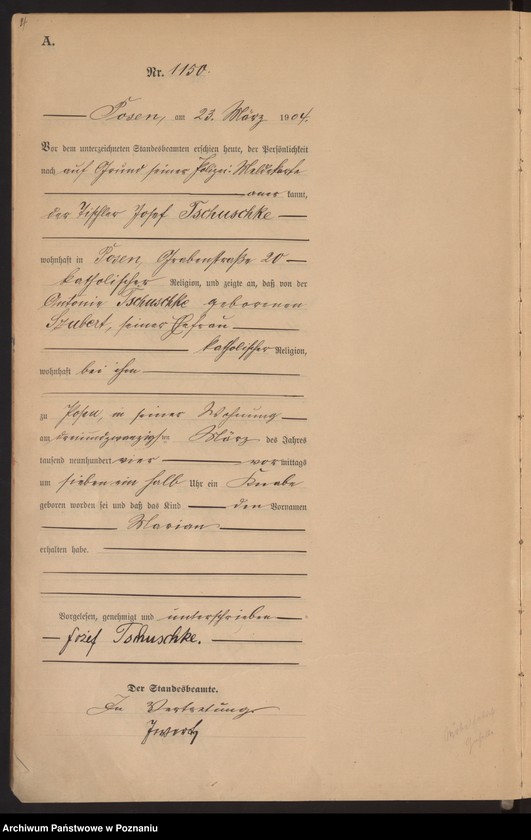 A.
Nr. 1150.
Posen, am 23. März 1904.
Vor dem unterzeichneten Standesbeamten erschien heute, der Persönlichkeit
nach auf Grund seiner Polizei-Meldekarte
aner kannt,
der Tischler Josef Tschuschke
wohnhaft in Posen, Grabenstraße 20
katholischer Religion, und zeigte an, daß von der
Antonie Tschuschke geborenen
Szubert, seiner Ehefrau
katholischer Religion,
wohnhaft bei ihm
zu Posen, in seiner Wohnung
am dreiundzwanzigsten März des Jahres
tausend neunhundert vier vor mittags
um sieben ein halb Uhr ein Knabe
geboren worden sei und daß das Kind den Vornamen
Marian
erhalten habe.
Vorgelesen, genehmigt und unterschrieben
Józef Tschuschke.
Der Standesbeamte.
In Vertretung
Archiwum Państwowe w Poznaniu